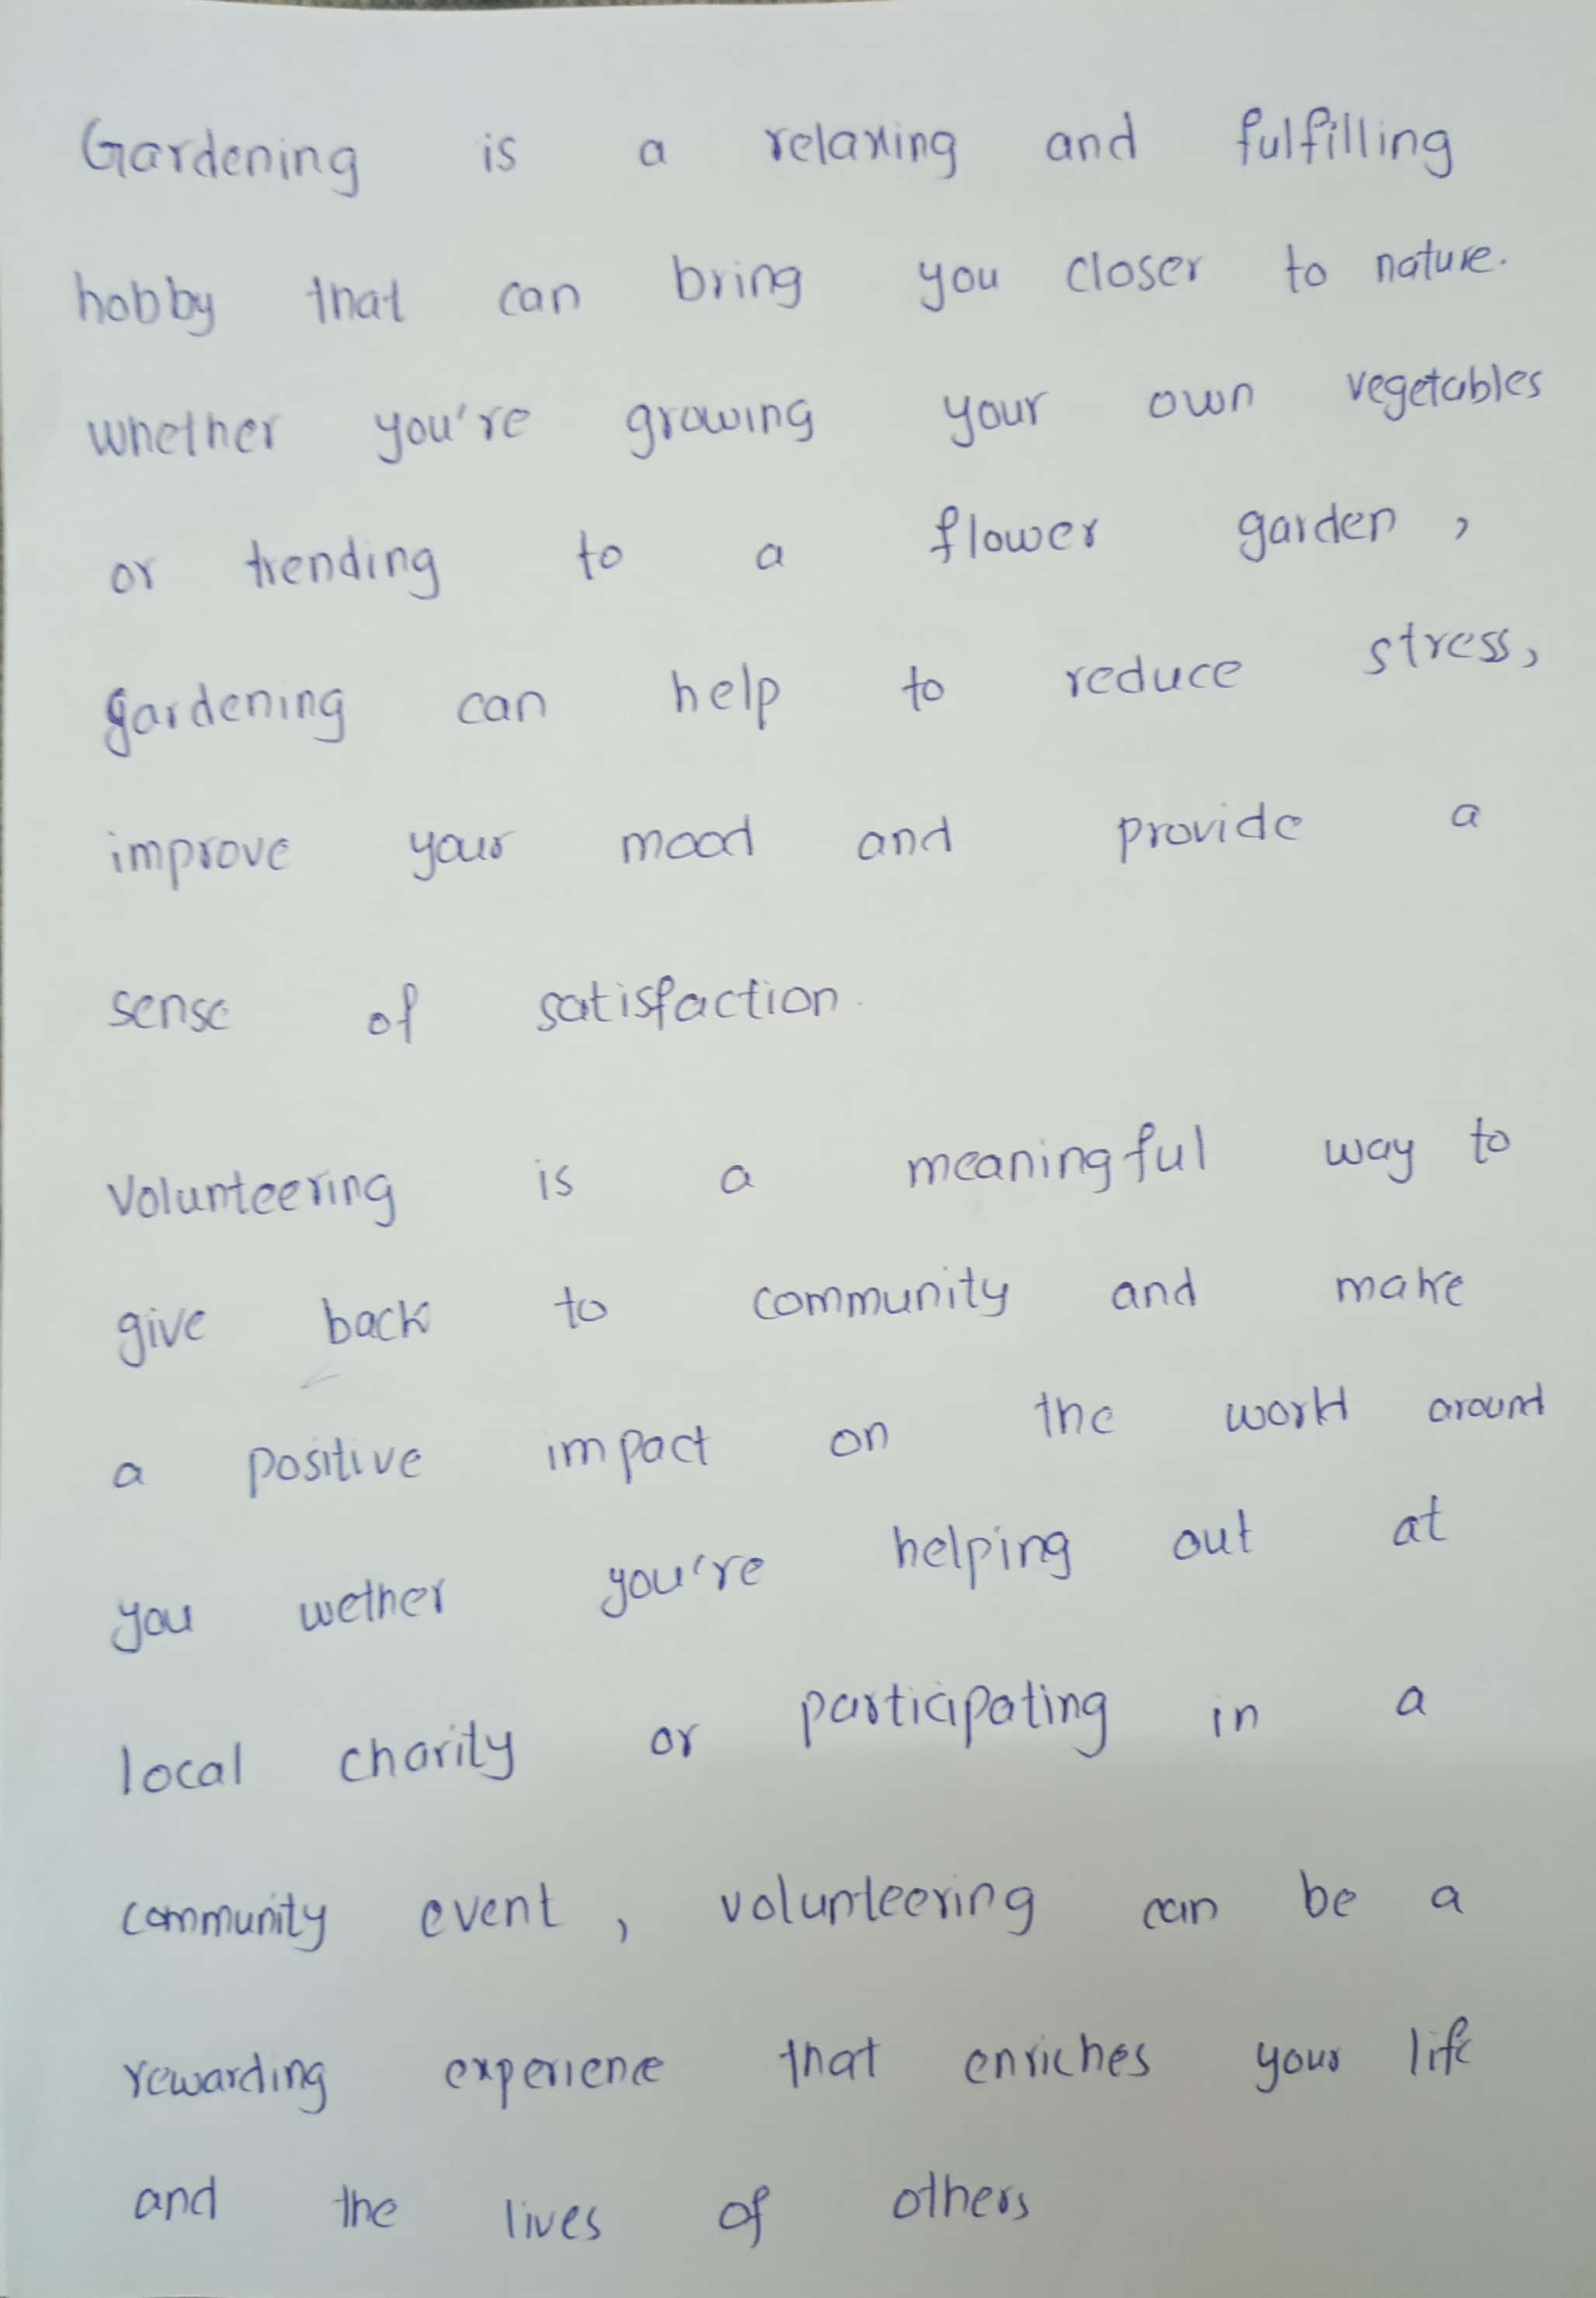 Gardening is a relaxing and fulfilling
hobby that can bring you closer to nature.
whether you're growing your own vegetables
or trending to a flower garden,
gardening can help to reduce stress,
improve your mood and provide a
sense of satisfaction.
Volunteering is a meaningful way to
give back to community and make
a positive impact on the world around
you wether you're helping out at
local charity or participating in a
community event, volunteering can be a
rewarding experience that enriches your life
and the lives of others